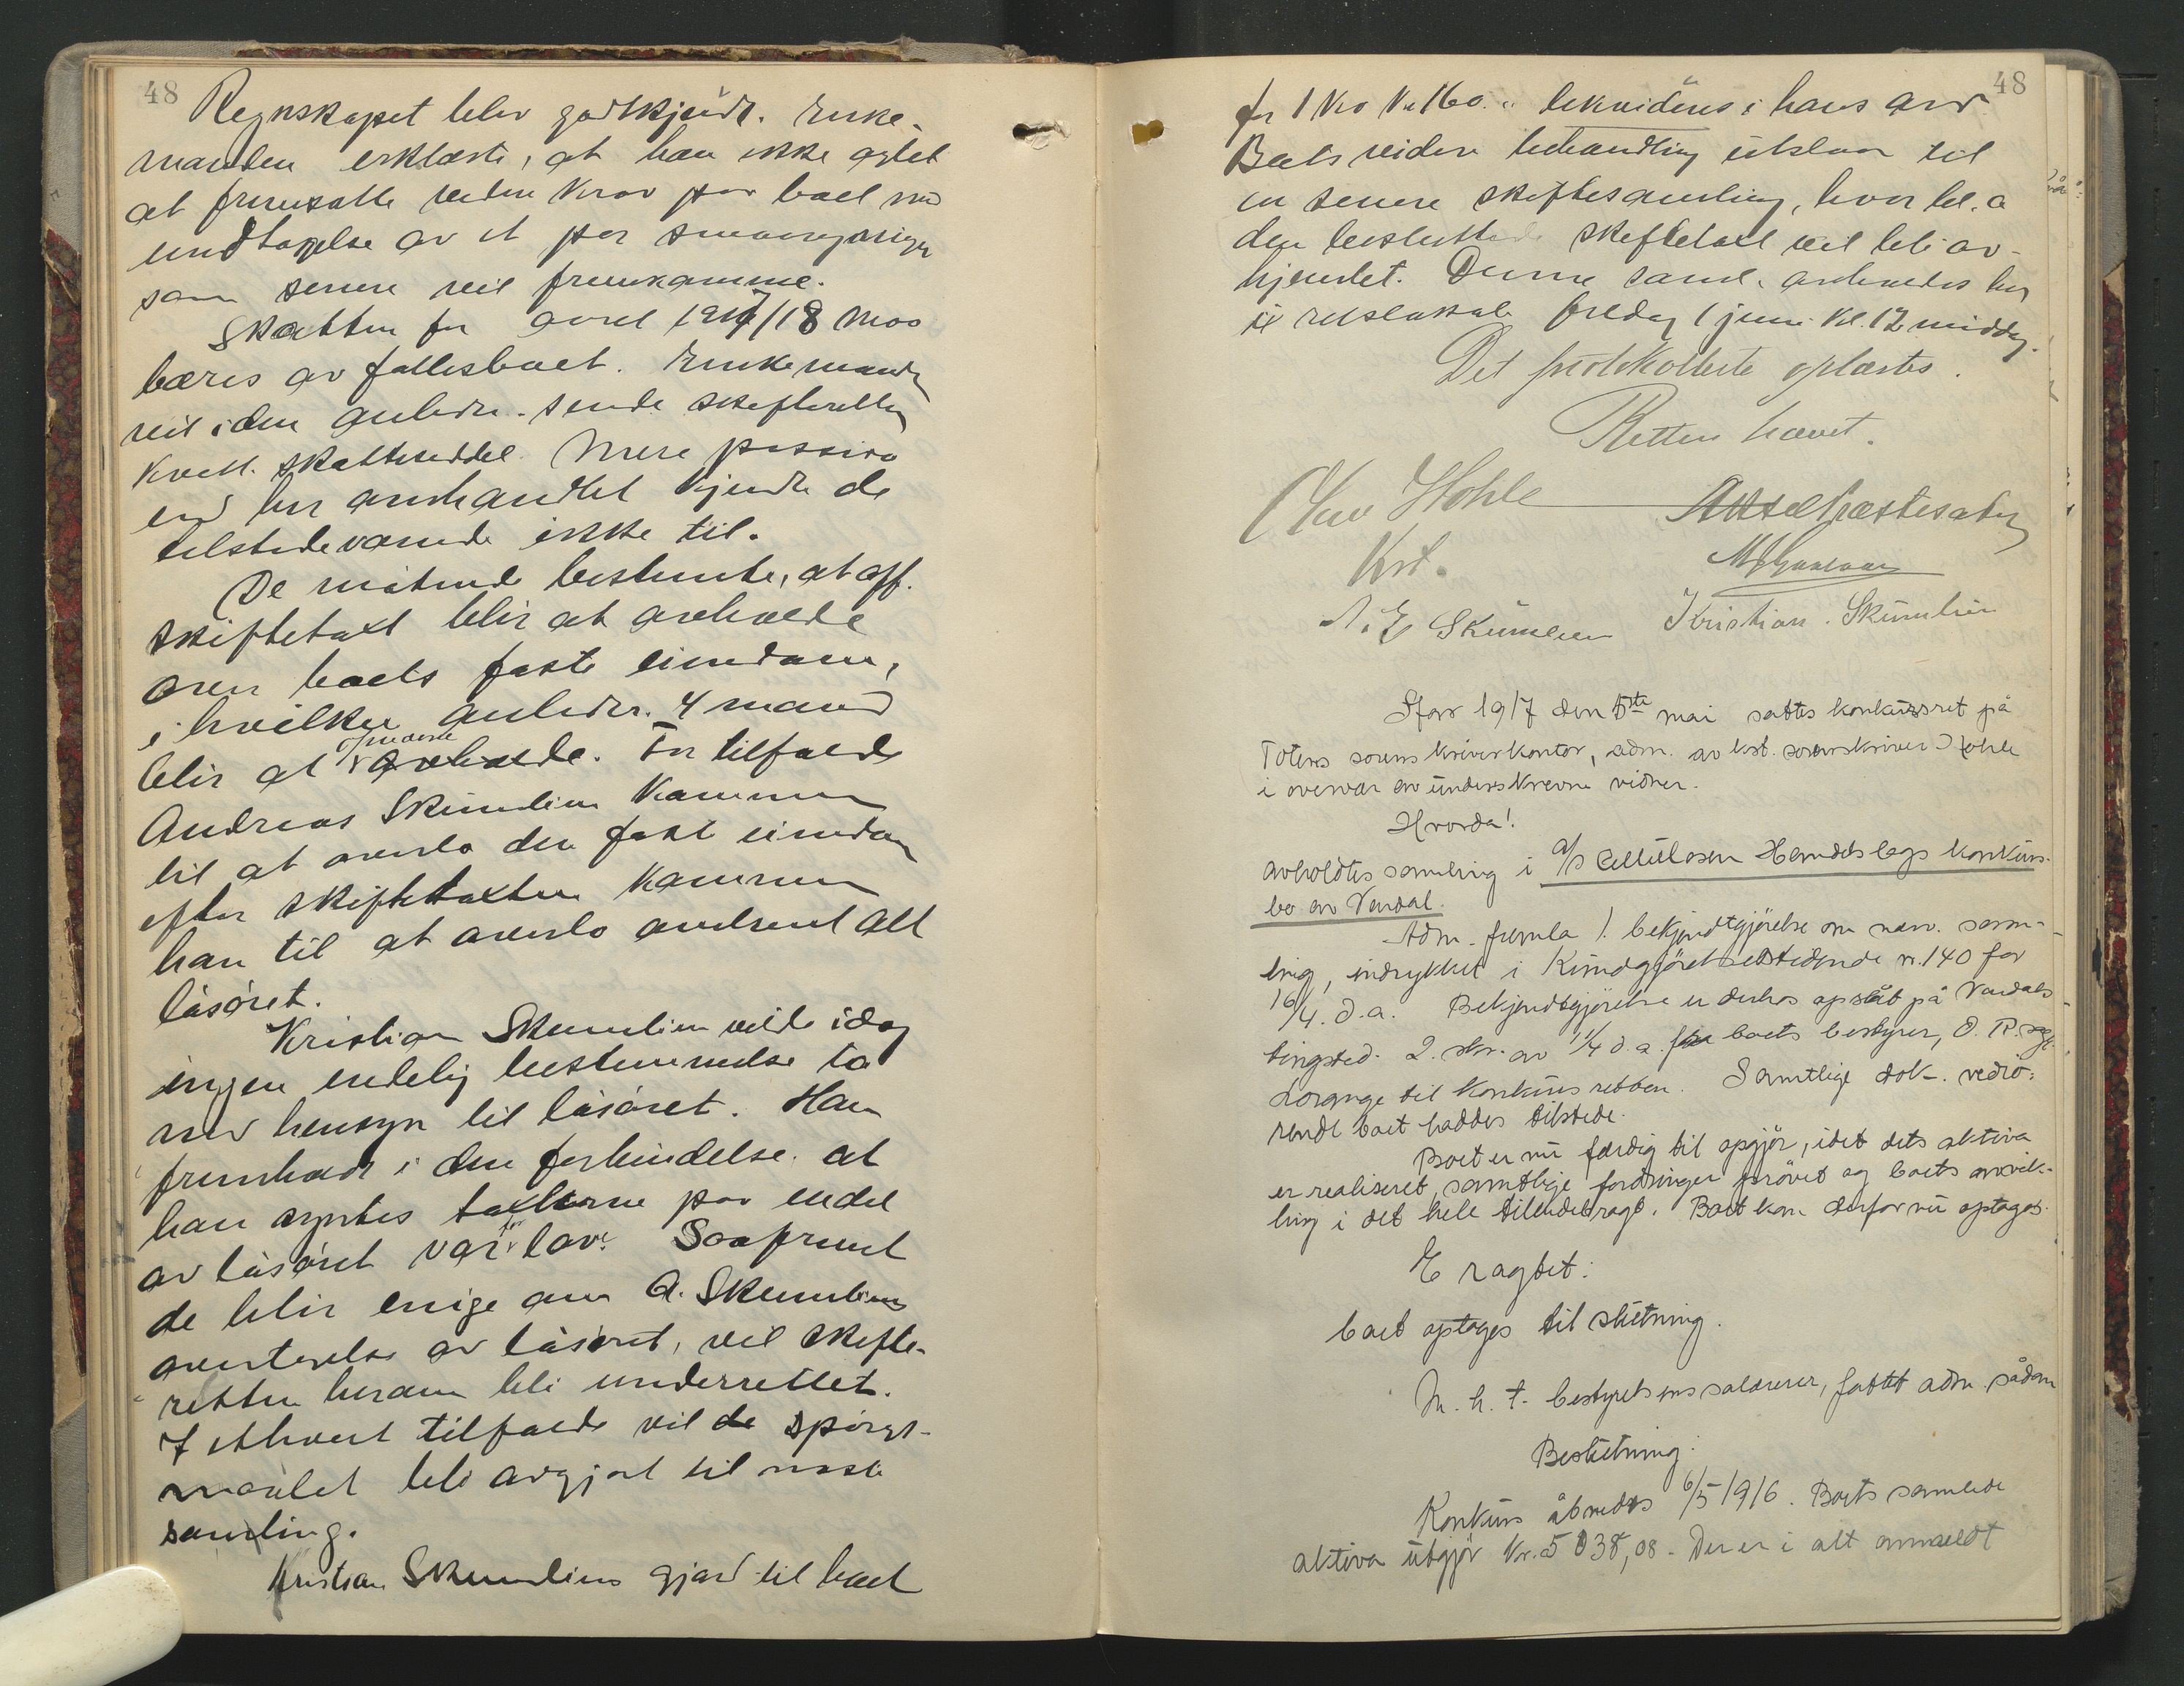 48
Regnskapet blev godkjendt. Enke-
manden erklærte, at han ikke agtet
at fremsætte videre krav paa boet med
undtagelse av et par smaaregninger
som senere vil fremkomme.
Skatten for aaret 1917/18 maa
bæres av fællesboet. Enkemanden
vil i den anledn. sende skifteretten
kvitt. skatteseddel. Mere passiva
end her omhandlet kjendte de
tilstedeværende ikke til.
De møtende bestemte, at off.
skiftetaxt blir at avholde
over boets faste eiendom,
i hvilken anledn. 4 mand
blir at opnævne avholde. For tilfælde
Andreas Skumlien kommer
til at overta den faste eiendom
efter skiftetaxten kommer
han til at overta omtrent alt
løsøret.
Kristian Skumlien vilde idag
ingen endelig bestemmelse ta
med hensyn til løsøret. Han
fremholdt i den forbindelse at
han syntes taxterne paa endel
av løsøret var for lav. Saafremt
de blir enige om A. Skumliens
overtagelse av løsøret, vil skifte-
retten herom bli underrettet.
I ethvert tilfælde vil de spørgs-
maalet bli avgjort til næste
samling.
Kristian Skumliens gjæld til boet
48
for 1 ko kr 160.- likvideres i hans arv
Boets videre behandling utstaar til
en senere skiftesamling, hvor bl. a
den besluttede skiftetaxt vil bli av-
hjemlet. Denne saml. avholdes her
i retslokale fredag 1 juni kl. 12 middag.
Det protokollerte oplæstes.
Retten hævet.
Olav Hohle
Kst.
A. E Skumlien Kristian Skumlien
Aar 1917 den 5te mai sattes konkursret på
Totens sorenskriverkontor, adm. av kst. sorenskriver Hohle
i overvær av underskrevne vidner.
Hvorda!
avholdtes samling i a/s Cellulosen Handelslags konkurs-
bo av Vardal.
Adm. fremla 1. bekjendtgjørelse om nærv. sam-
ling, indrykket i Kundgjørelsestidende nr. 140 for
16/4. d.a. Bekjendtgjørelse er derhos opslåt på Vardals
tingsted. 2. skr. av 1/4 d.a. fra boets bestyrer, O. R. sgf.
Lorange til konkursretten. Samtlige dok. vedrø-
rende boet haddes tilstede.
Boet er nu færdig til opgjør, idet dets aktiva
er realiseret, samtlige fordringer prøvet og boets avvik-
ling i det hele tilendebragt. Boet kan derfor nu optages.
Eragtet:
boet optages til slutning.
M. h. t. bestyrelsens salærer, fattet adm. sådan
Beslutning:
Konkurs åbnedes 6/5 1916. Boets samlede
aktiva utgjør kr. 5038,08 - Der er i alt anmeldt